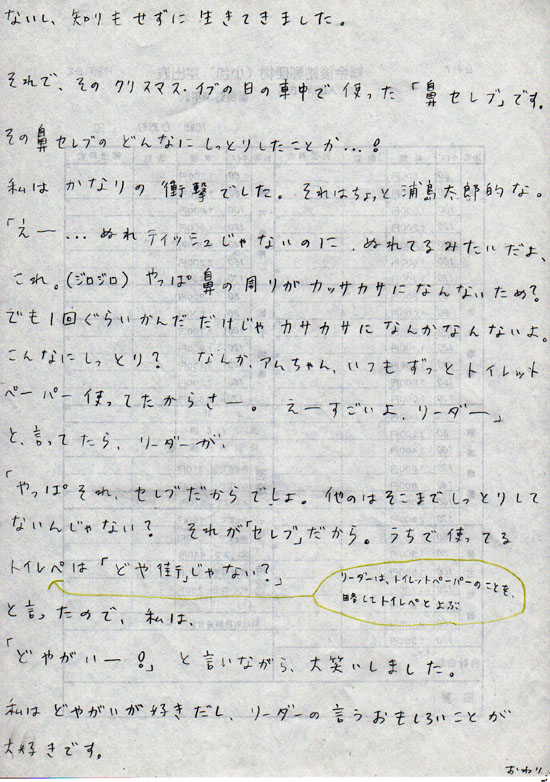 ないし、知りもせずに生きてきました。
それで、そのクリスマス・イブの日の車中で使った「鼻セレブ」です。
その鼻セレブのどんなにしっとりしたことか…!
私はかなりの衝撃でした。それはちょっと浦島太郎的な。
「えー…ぬれティッシュじゃないのに、ぬれてるみたいだよ、
これ。(ジロジロ)やっぱ鼻の周りがカッサカサになんないため?
でも1回ぐらいかんだだけじゃカサカサになんかなんないよ。
こんなにしっとり? なんか、アムちゃん、いつもずっとトイレット
ペーパー使ってたからさー。 えーすごいよ、リーダー」
と、言ってたら、リーダーが、
「やっぱそれ、セレブだからでしょ。他のはそこまでしっとりして
ないんじゃない? それが「セレブ」だから。うちで使ってる
トイレペは「どや街」じゃない?」
リーダーは、トイレットペーパーのことを、
略してトイレペとよぶ
と言ったので、私は、
「どやがいー!」と言いながら、大笑いしました。
私はどやがいが好きだし、リーダーの言うおもしろいことが
大好きです。
おわり